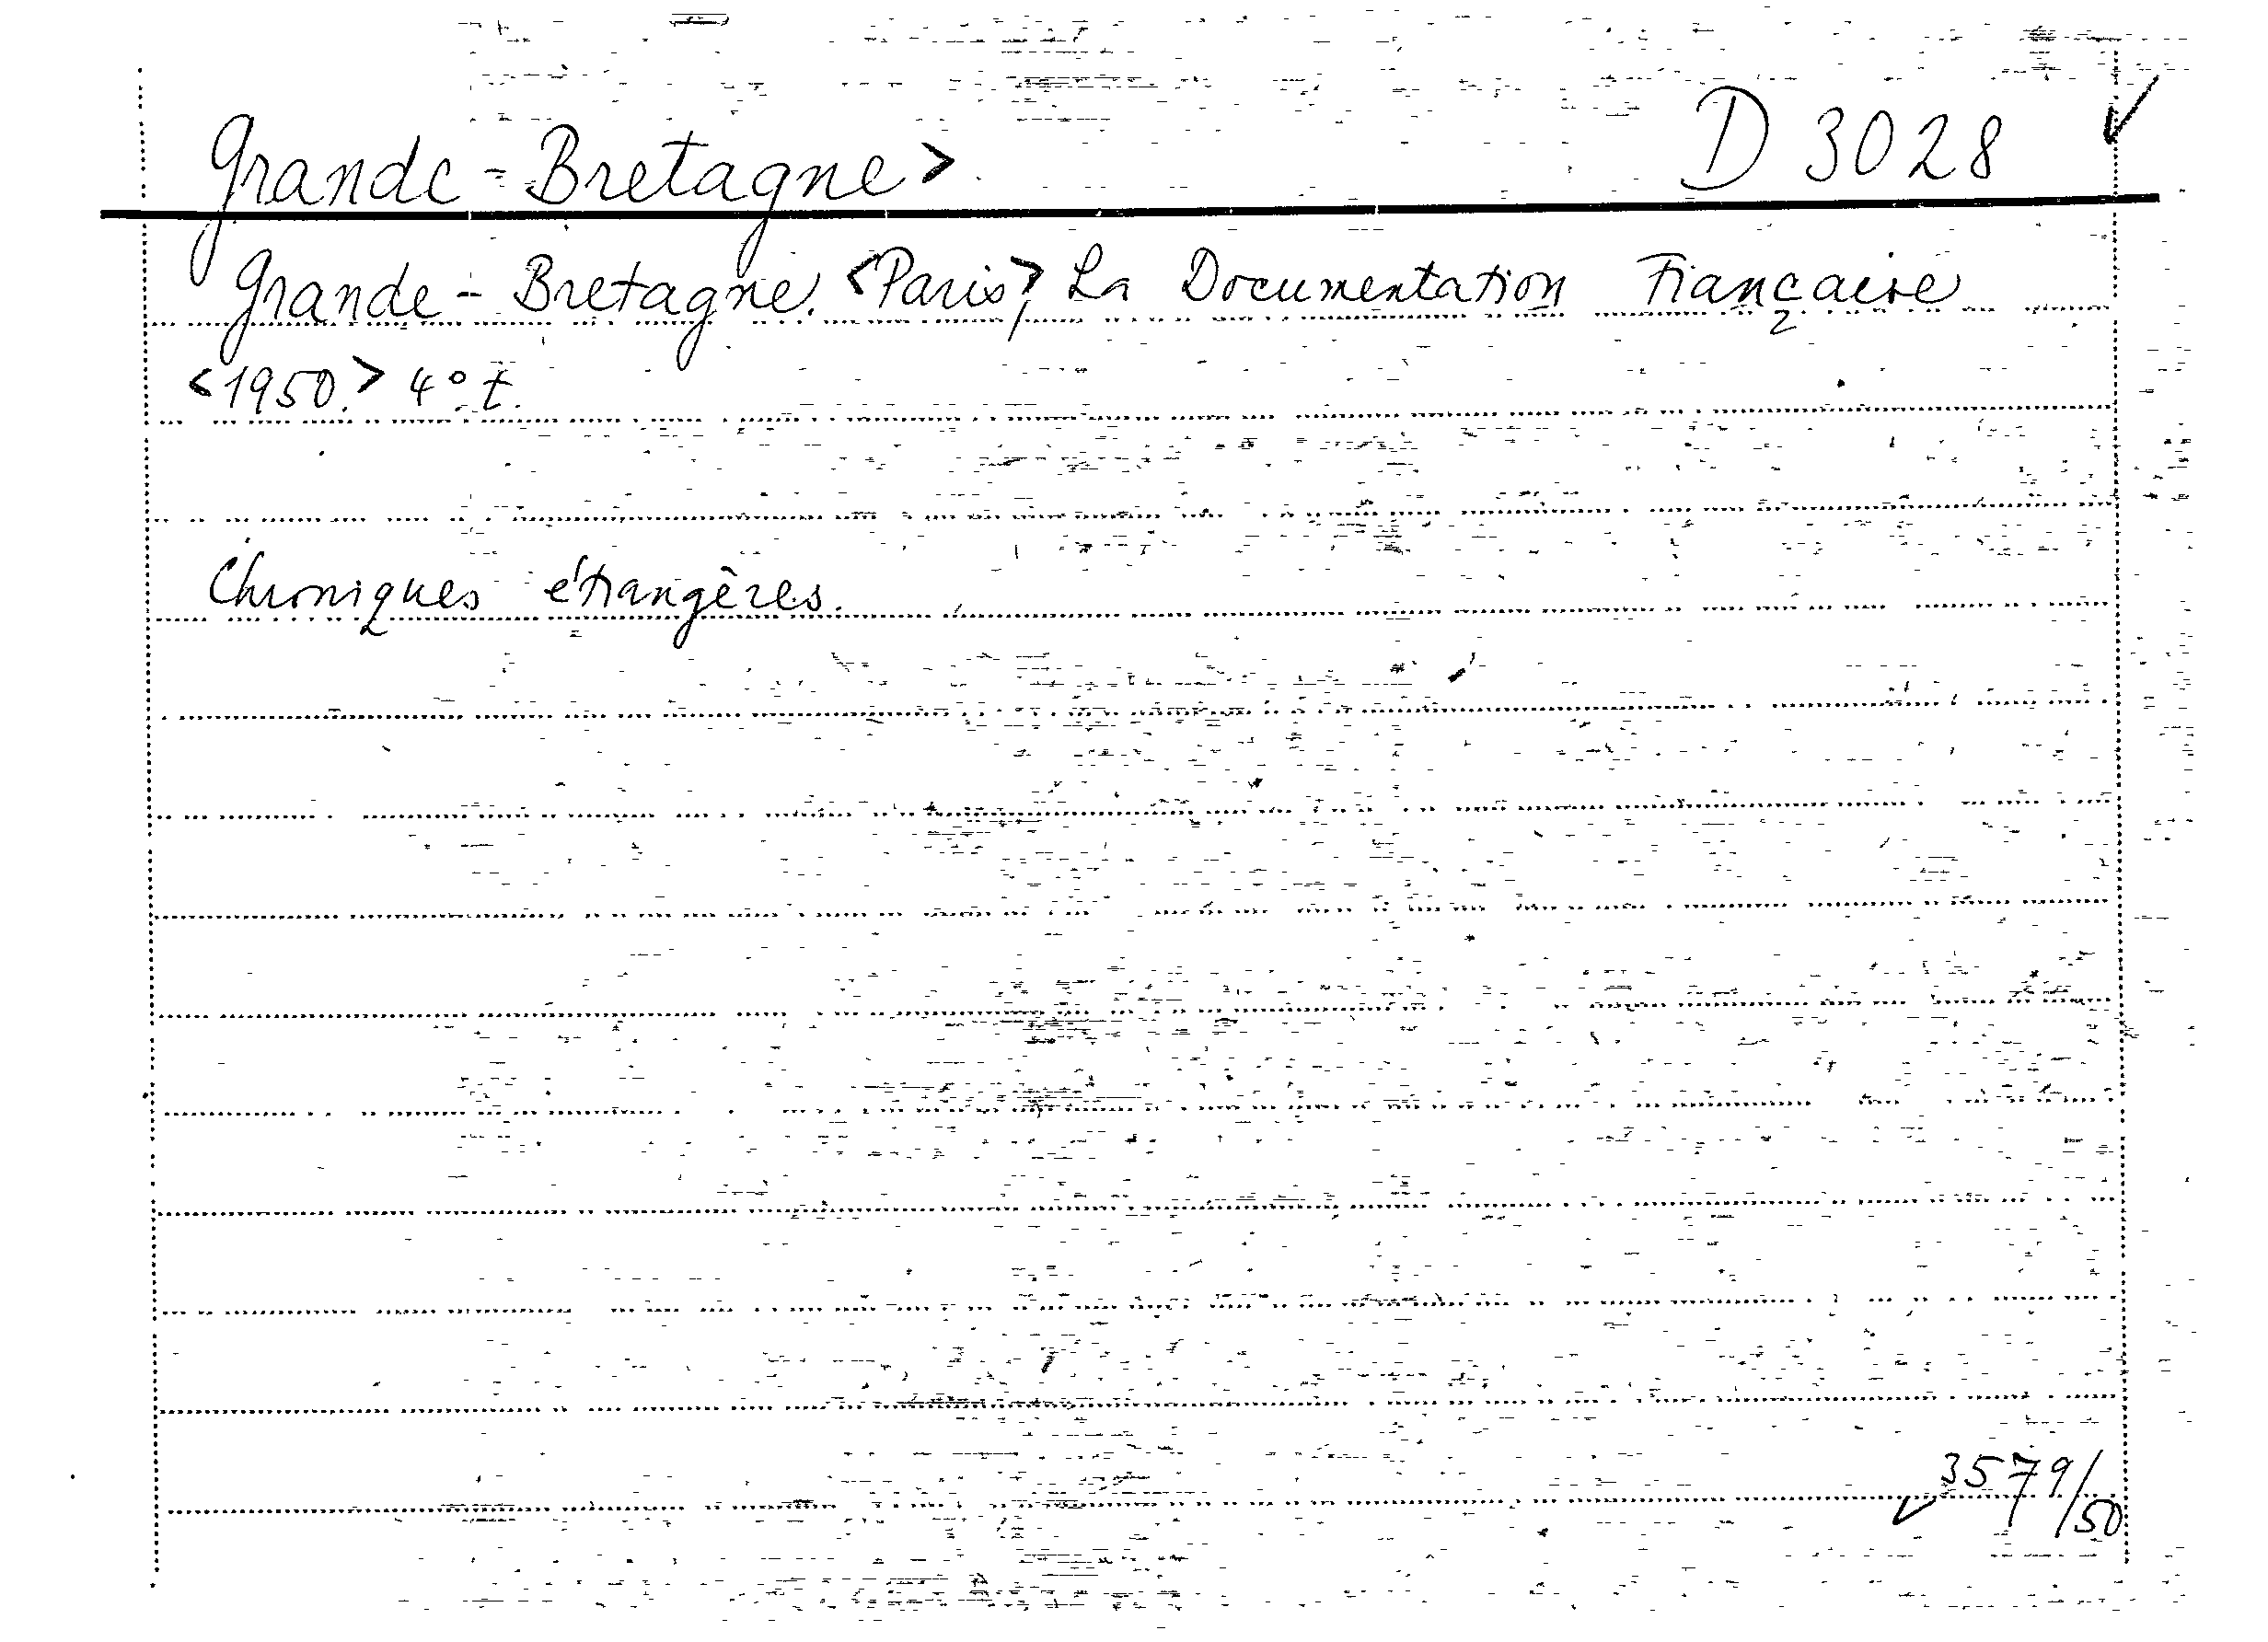 Grande-Bretagne> D 3028
Grande-Bretagne. <Paris,> La Documentation Française
<1950.> 4° t.
Chroniques étrangères.
3579/50